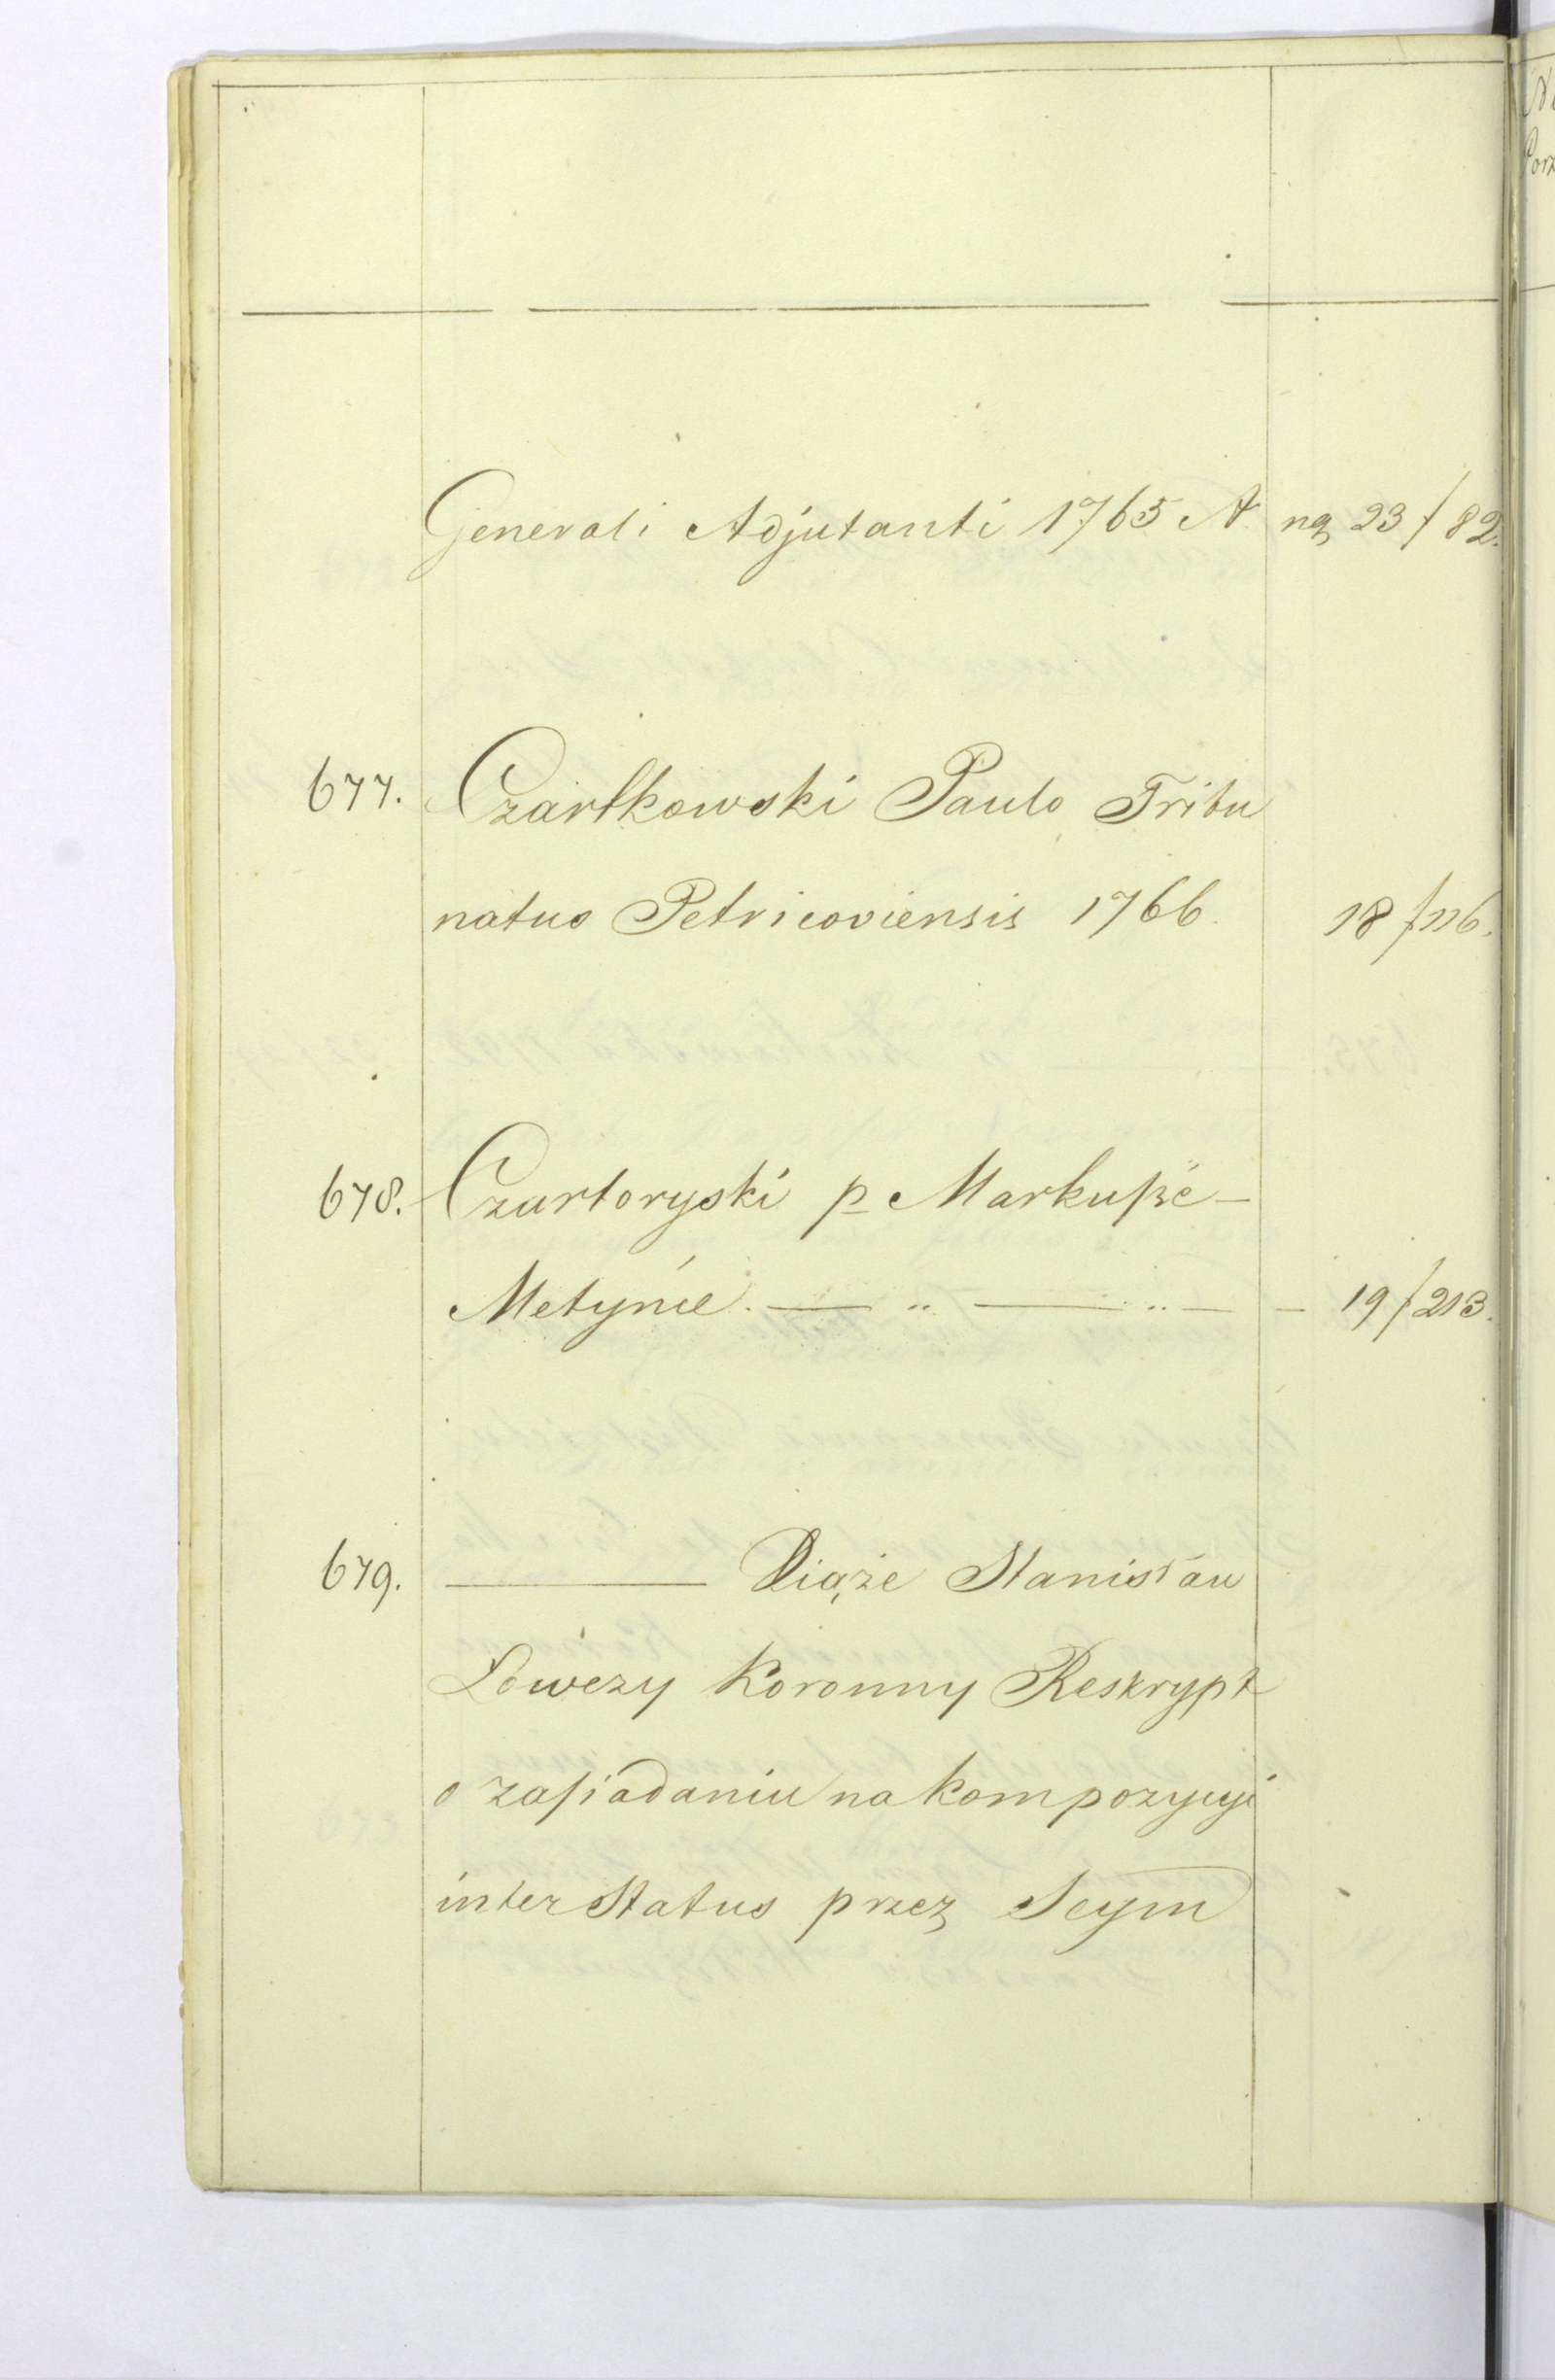 Generali Adjutanti 1765 A. na 23/82.
677. Czartkowski Paulo Tribu
natus Petricoviensis 1766. 18/116.
678. Czartoryski p Markuſzé –
Metynie. — „ — „ — – 19/213.
679. ——— Xiąże Stanisław
Łowczy Koronny Reskrypt
o zaſiadaniu na kompozycyi
inter Status przez Seym